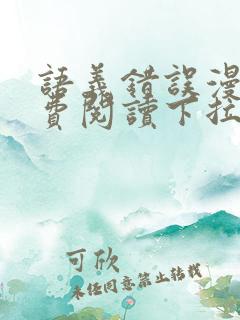 語義錯誤漫
費閱讀下拉
可欣
未经同意禁止转载